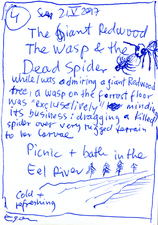 4 Sun 21.V.2017
The Giant Redwood
The Wasp & the
Dead Spider
while I was admiring a giant Redwood
tree; a wasp on the forrost floor
was "exclusively" mindin
its business: dragging a killed
spider over very rugged terrain
to her larvae
Picnic + bath in the
Eel River
Cold +
refreshing